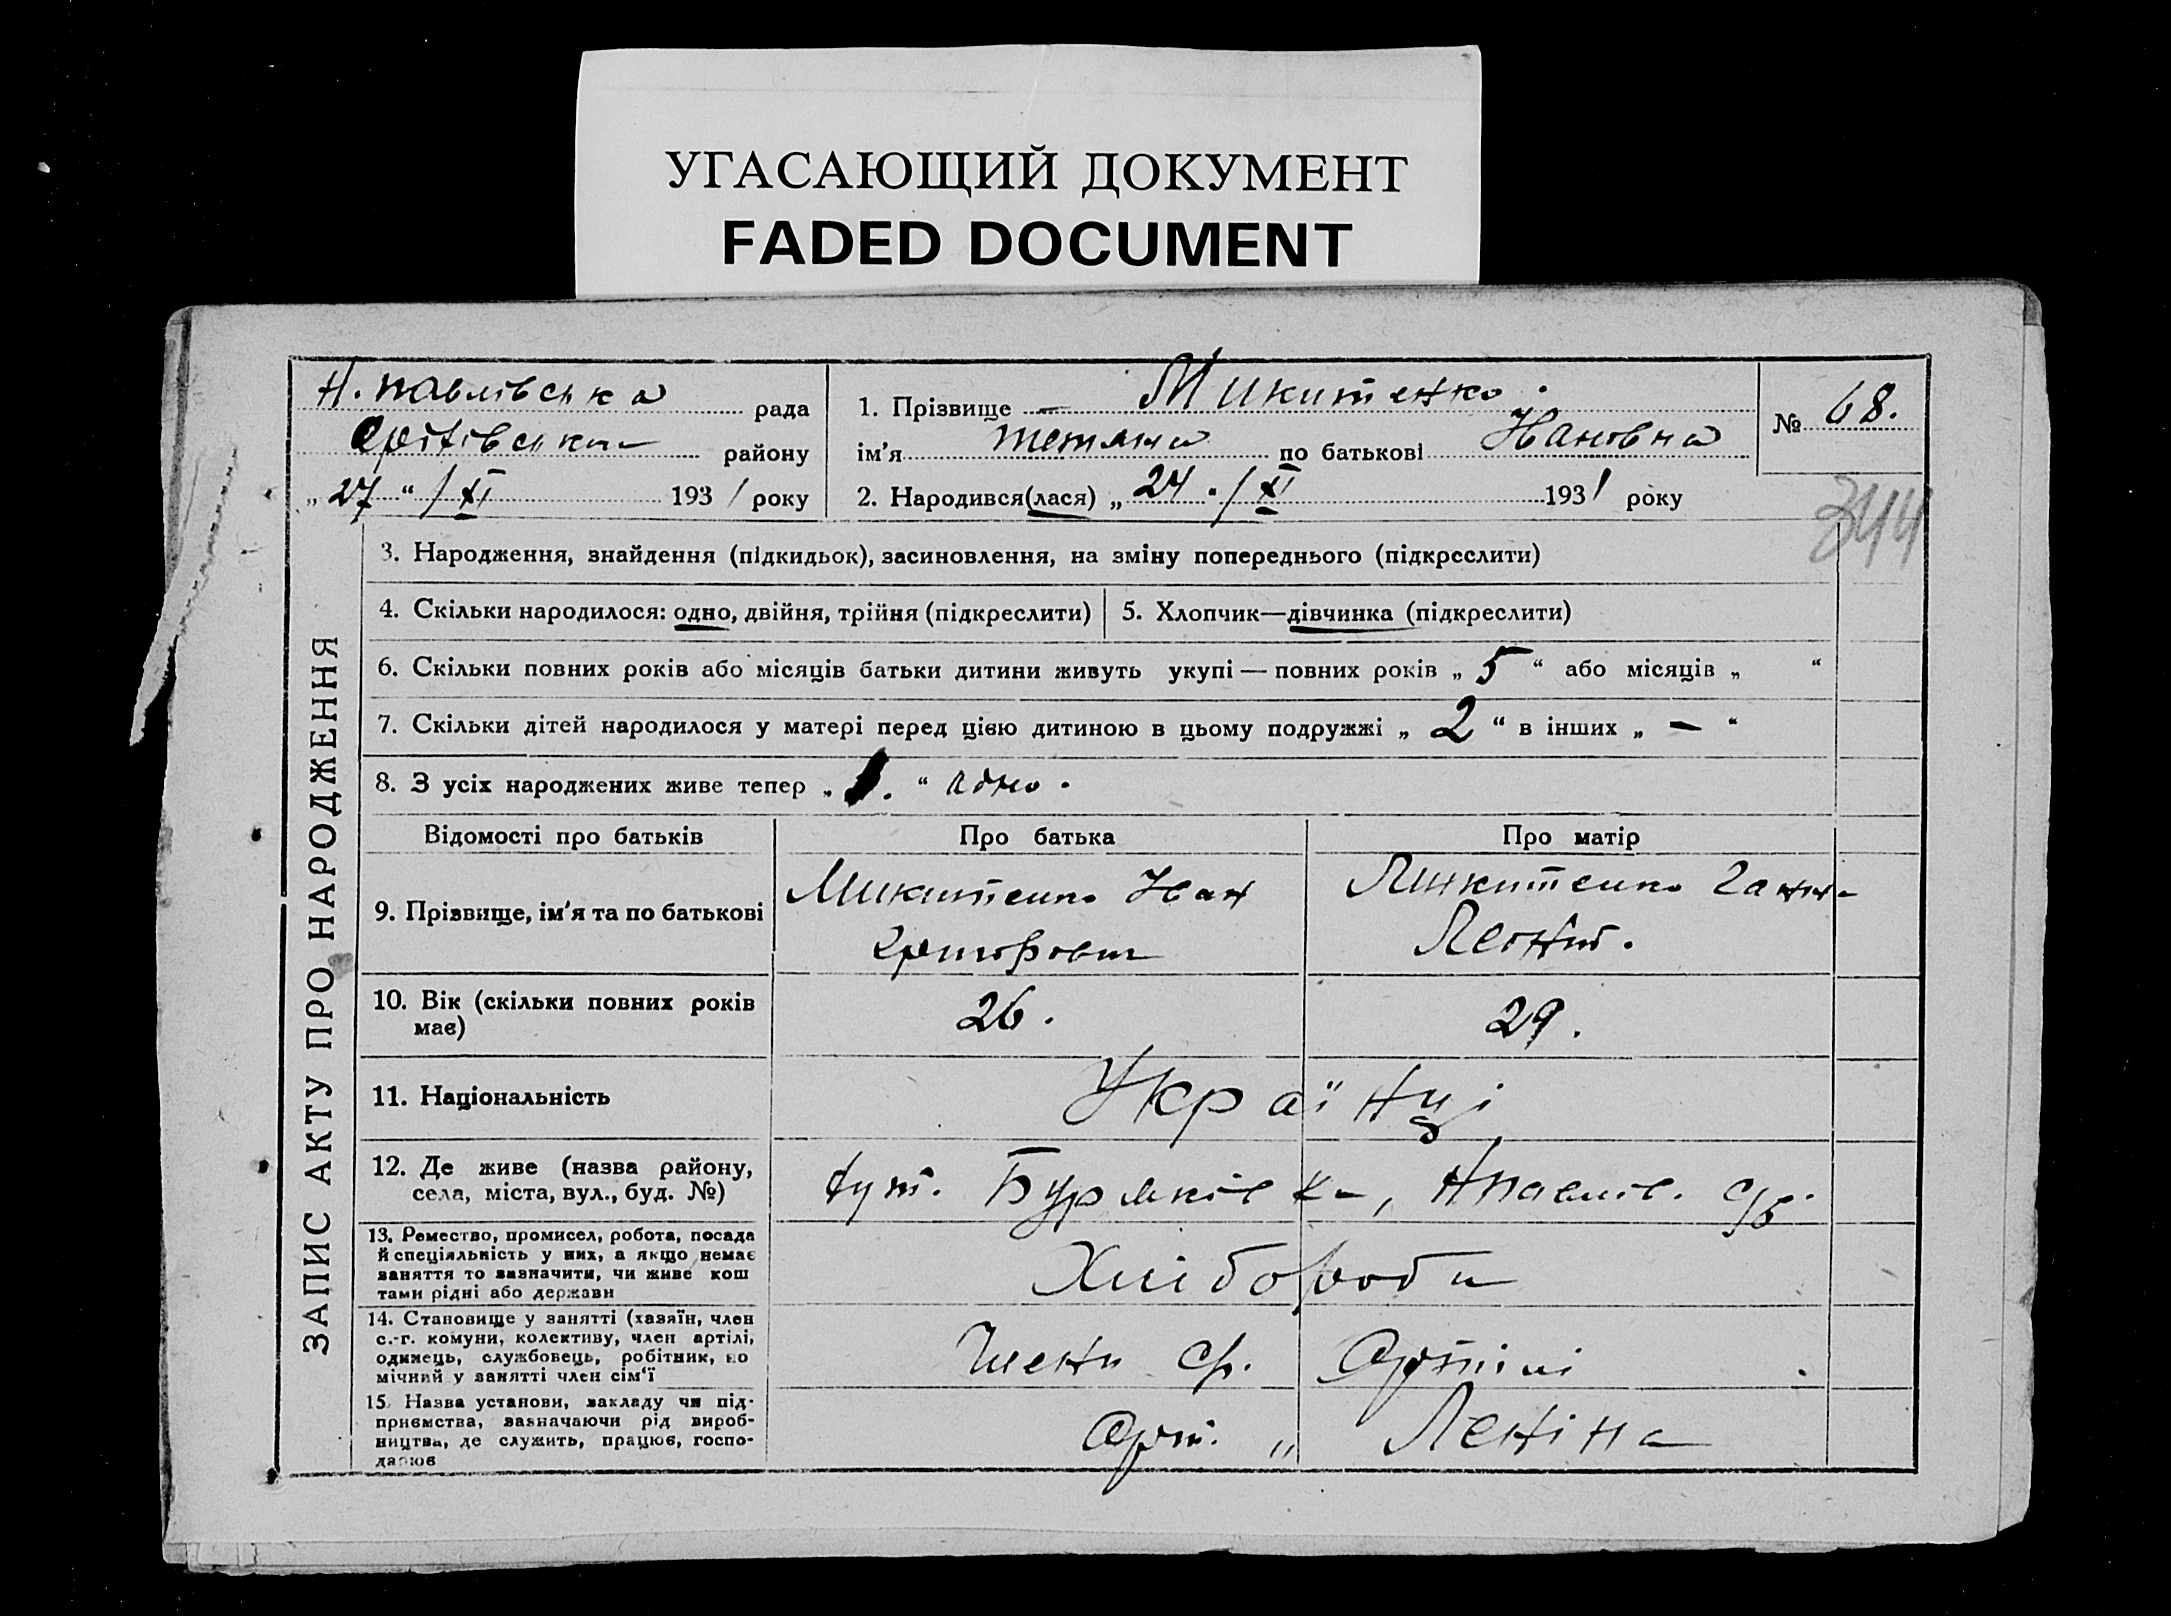 УГАСАЮЩИЙ ДОКУМЕНТ
FADED DOCUMENT
Н. Павлівська рада
району
„ 27 “ / XI 1931 року
1. Прізвище — Микитенко.
ім'я Тетяна по батькові Івановна
2. Народився(лася) „ 24 “ / XI 1931 року
№ 68.
344
ЗАПИС АКТУ ПРО НАРОДЖЕННЯ
3. Народження, знайдення (підкидьок), засиновлення, на зміну попереднього (підкреслити)
4. Скільки народилося: одно, двійня, трійня (підкреслити)
5. Хлопчик—дівчинка (підкреслити)
6. Скільки повних років або місяців батьки дитини живуть укупі — повних років „ 5 “ або місяців „ “
7. Скільки дітей народилося у матері перед цією дитиною в цьому подружжі „ 2 “ в інших „ — “
8. З усіх народжених живе тепер „ 1. “ одно.
Відомості про батьків
Про батька
Про матір
9. Прізвище, ім'я та по батькові
Микитенко Іван
Григорович
Микитенко Ганна
Леонт.
10. Вік (скільки повних років
має)
26.
29.
11. Національність
Українці
12. Де живе (назва району,
села, міста, вул., буд. №)
хут. Буряківка, Нпавлів. с/р.
13. Ремество, промисел, робота, посада
й спеціяльність у них, а якщо немає
заняття то зазначити, чи живе кош
тами рідні або держави
Хлібороби
14. Становище у занятті (хазяїн, член
с.-г. комуни, колективу, член артілі,
одинець, службовець, робітник, по
мічний у занятті член сім'ї
Члени ср. Артілі
15. Назва установи, закладу чи під-
приємства, зазначаючи рід вироб-
ництва, де служить, працює, госпо-
дарює
Арт. „ Леніна